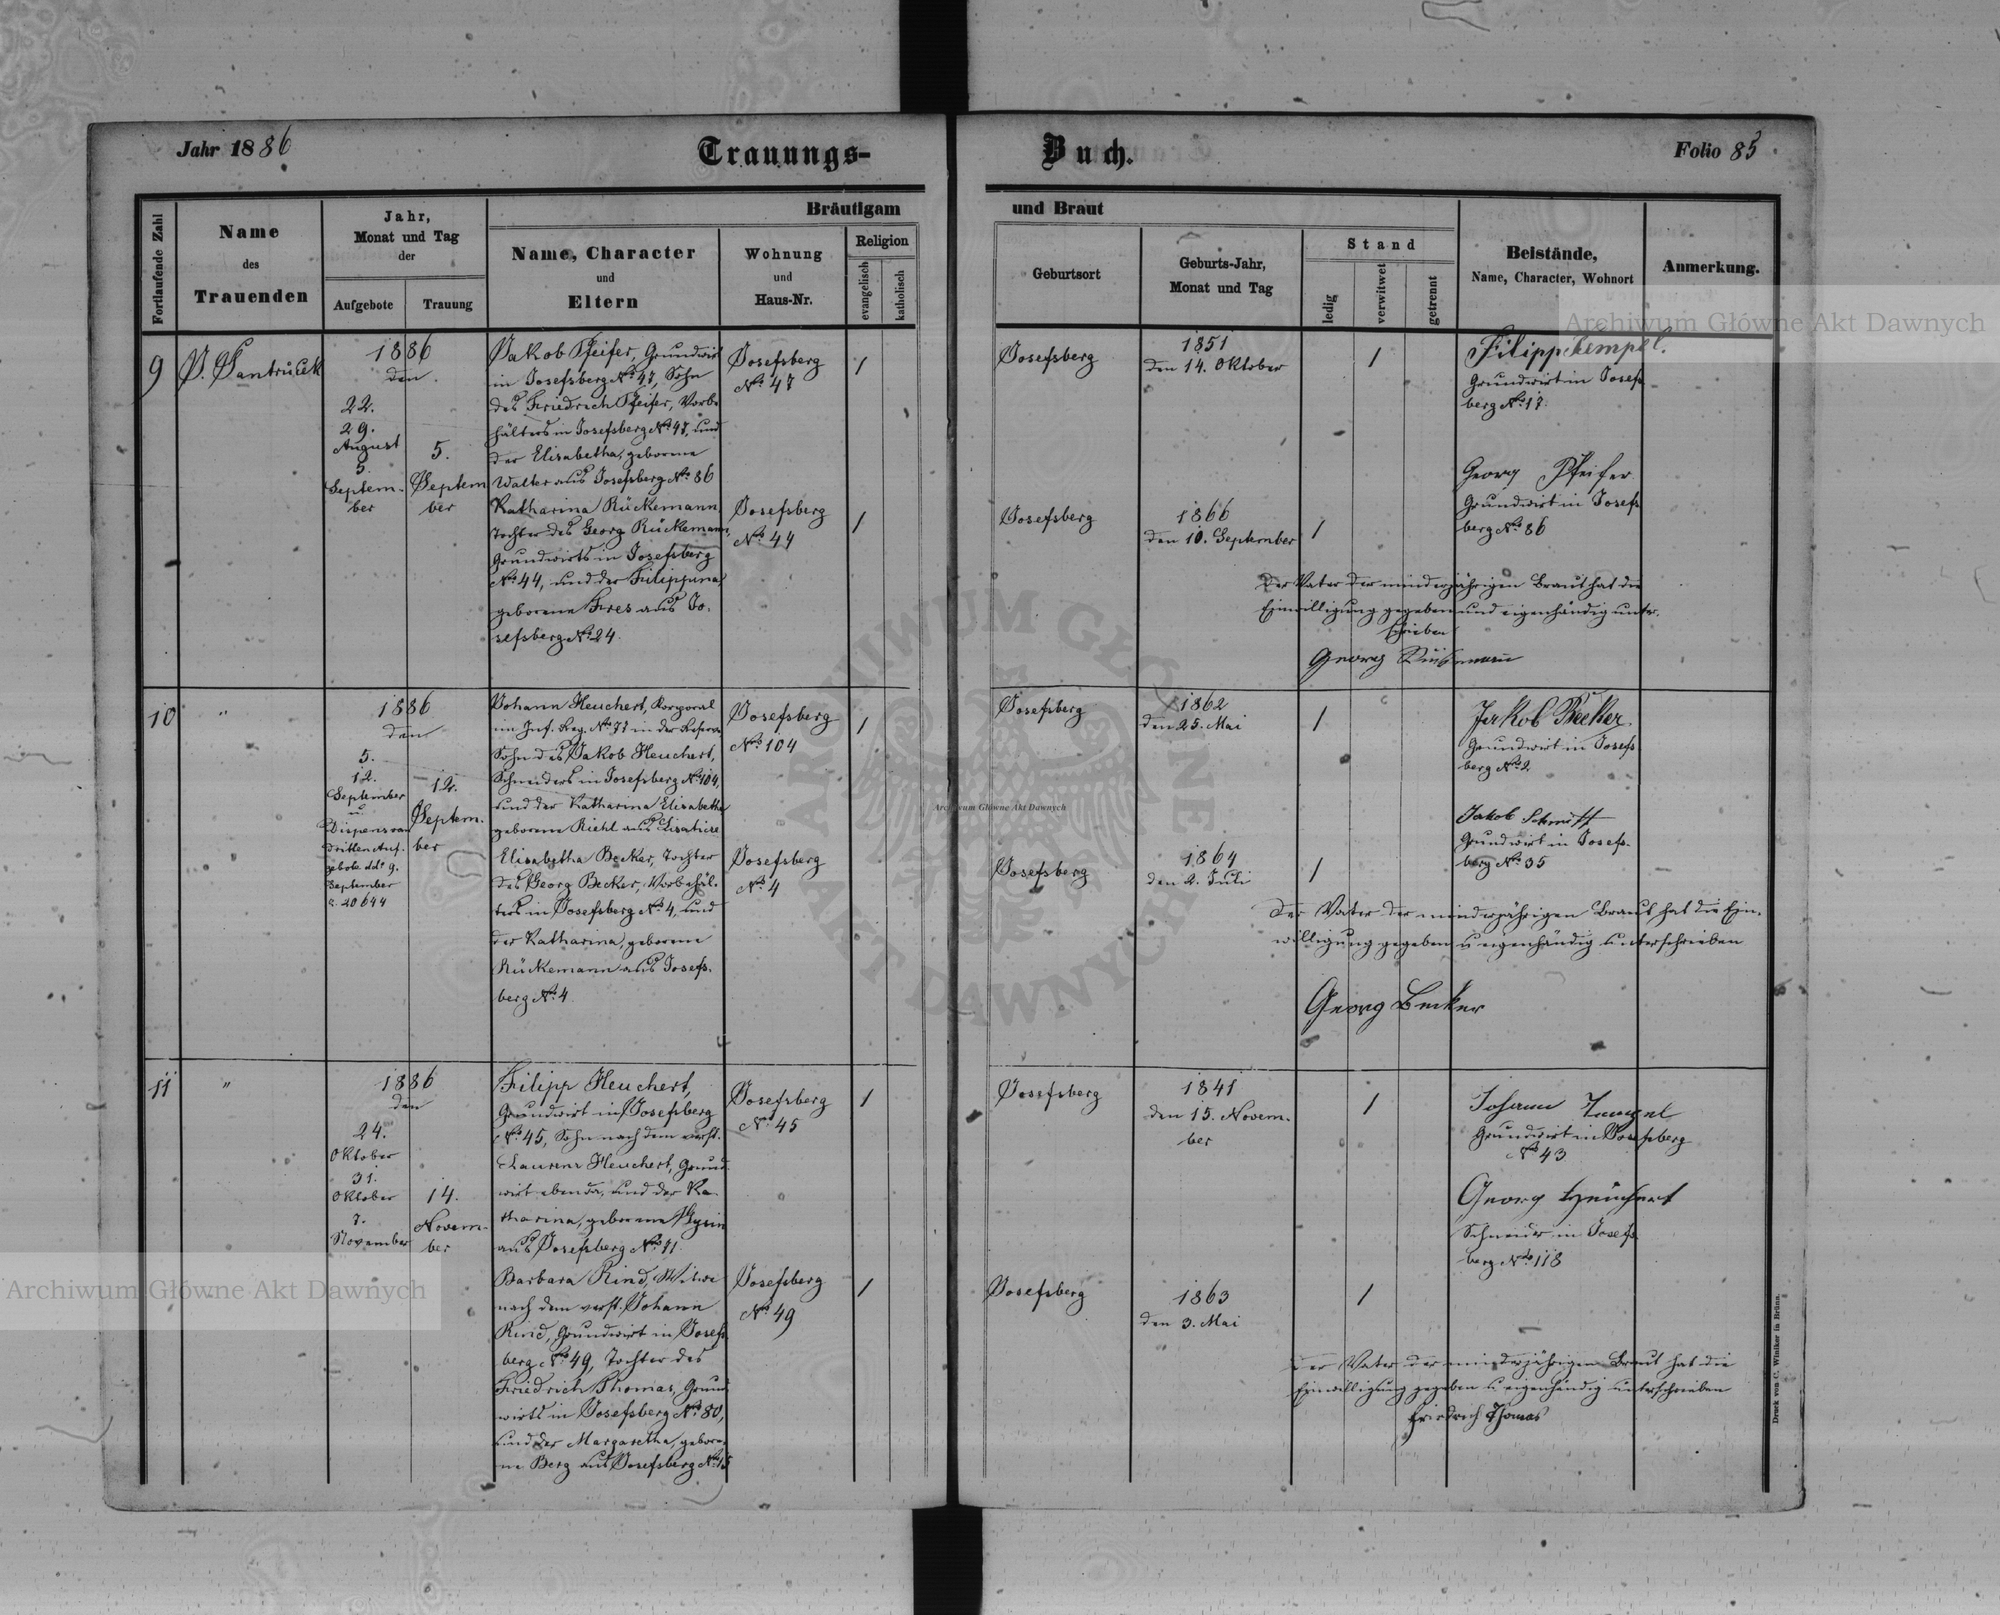 Jahr 1886
Trauungs-
Buch.
Folio 83
Fortlaufende Zahl
Name
des
Trauenden
Jahr,
Monat und Tag
der
Aufgebote
Trauung
Bräutigam
und Braut
Name, Character
und
Eltern
Wohnung
und
Haus-Nr.
Religion
evangelisch
katholisch
Geburtsort
Geburts-Jahr,
Monat und Tag
Stand
ledig
verwitwet
getrennt
Beistände,
Name, Character, Wohnort
Anmerkung.
9
1886
den
22.
29.
August
5.
Septem-
ber
5.
Septem
ber
Jakob Pfeifer, Grundwirt
in Josefsberg No 47, Sohn
des Friedrich Pfeifer, Vorbe
hälters in Josefsberg No 47, und
der Elisabetha, geborene
Walter aus Josefsberg No 86
Josefsberg
No 47
/
Josefsberg
1851
den 14. Oktober
/
Filipp Hempel.
Grundwirt in Josefs
berg No 17.
Georg Pfeifer
Grundwirt in Josefs
berg No 86
Katharina Rückemann
Tochter des Georg Rückemann,
Grundwirts in Josefsberg
No 44, und der Filippina
geborene Fries aus Jo-
sefsberg No 24.
Josefsberg
No 44
/
Josefsberg
1866
den 10. September
/
Der Vater der minderjährigen Braut hat die
Einwilligung gegeben und eigenhändig unter-
schrieben
Georg Rückemann
10
"
1886
den
5.
12.
September
u.
Dispens von
dritten Auf-
gebote ddo 9.
September
a. 20644
12.
Septem-
ber
Johann Heuchert, Korporal
im Inf. Reg. No 77 in der Reserve
Sohn des Jakob Heuchert,
Schneiders in Josefsberg No 104,
und der Katharina Elisabetha
geborene Riehl aus
Josefsberg
No 104
/
Josefsberg
1862
den 25. Mai
/
Jakob Becker
Grundwirt in Josefs
berg No 2
Jakob Schmitt
Grundwirt in Josefs-
berg No 35
Elisabetha Becker, Tochter
des Georg Becker, Vorbehäl-
ters in Josefsberg No 4, und
der Katharina, geborene
Rückemann aus Josefs-
berg No 4
Josefsberg
No 4
Josefsberg
1864
den 2. Juli
/
Der Vater der minderjährigen Braut hat die Ein-
willigung gegeben u eigenhändig unterschrieben
Georg Becker
11
"
1886
den
24.
Oktober
31.
Oktober
7.
November
14.
Novem-
ber
Filipp Heuchert,
Grundwirt in Josefsberg
No 45, Sohn nach dem verst.
Laurenz Heuchert, Grund
wirt ebenda, und der Ka-
tharina, geborene
aus Josefsberg No 11.
Josefsberg
No 45
/
Josefsberg
1841
den 15. Novem-
ber
/
Johann
Grundwirt in Josefsberg
No 43
Georg Heuchert
Schneider in Josefs
berg No 118
Barbara Rind, Witwe
nach dem verst. Johann
Rind, Grundwirt in Josefs
berg No 49, Tochter des
Friedrich Thomas, Grund
wirts in Josefsberg No 80,
und der Margaretha, gebore-
ne Berg aus Josefsberg No 15
Josefsberg
No 49
/
Josefsberg
1863
den 3. Mai
/
Der Vater der minderjährigen Braut hat die
Einwilligung gegeben u eigenhändig unterschrieben
Friedrich Thomas
Druck von C. Winiker in Brünn.
Archiwum Główne Akt Dawnych
Archiwum Główne Akt Dawnych
Archiwum Główne Akt Dawnych
ARCHIWUM GŁÓWNE AKT DAWNYCH